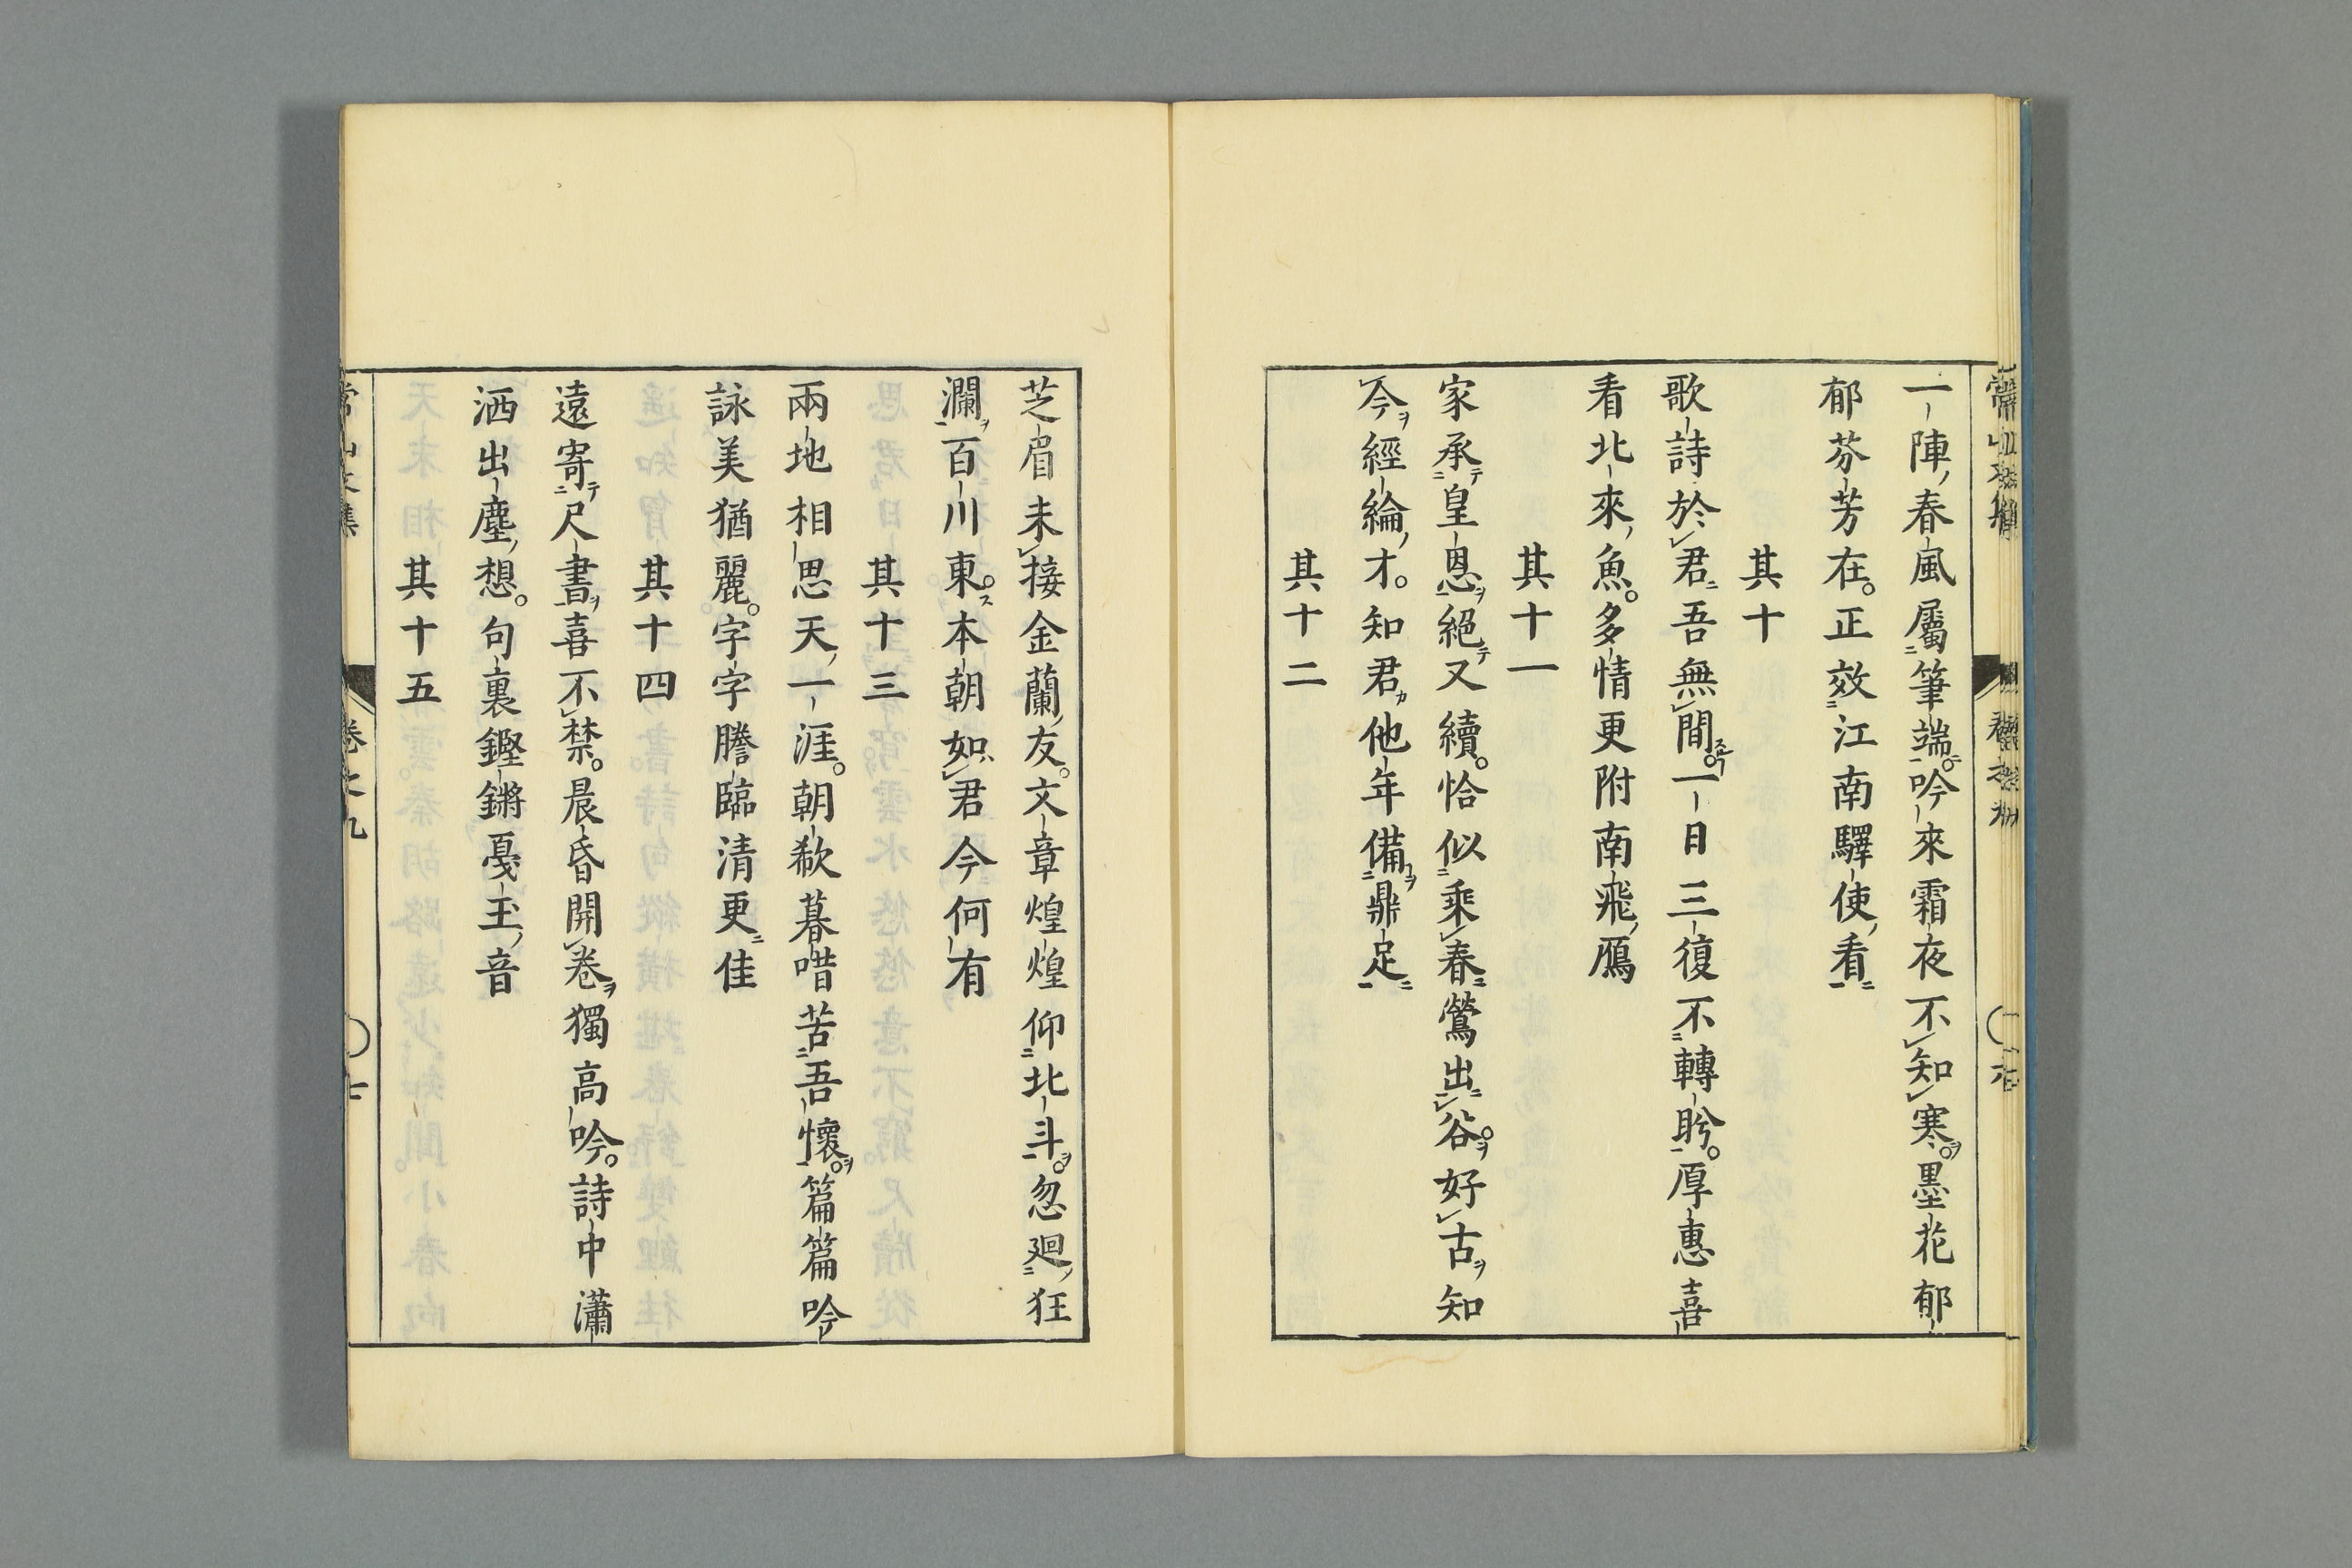 一陣春風屬筆端。吟來霜夜不知寒。墨花郁
郁芬芳在。正效江南驛使看
其十
歌詩於君吾無間。一日三復不轉眄。厚惠喜
看北來魚。多情更附南飛鴈
其十一
家承皇恩絕又續。恰似乘春鶯出谷。好古知
今經綸才。知君他年備鼎足
其十二
芝眉未接金蘭友。文章煌煌仰北斗。忽廻狂
瀾百川東。本朝如君今何有
其十三
兩地相思天一涯。朝欷暮喈苦吾懷。篇篇吟
詠美猶麗。字字謄臨清更佳
其十四
遠寄尺書喜不禁。晨昏開卷獨高吟。詩中瀟
洒出塵想。句裏鏗鏘戛玉音
其十五
常山文集
卷之九